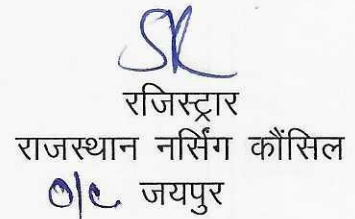 रजिस्ट्रार
राजस्थान नर्सिंग कौंसिल
O/c जयपुर